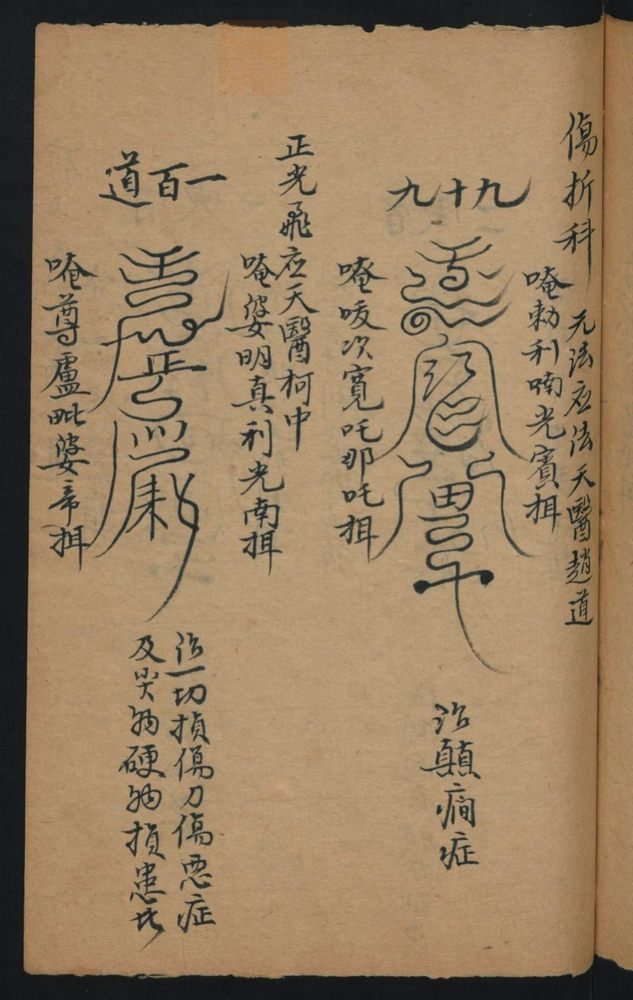 傷折科 元法应法天醫趙道
唵勅利喃光賓揖
九十九
唵唛次寬吒那吒揖
治顛癎症
正光飛应天醫柯中
唵婆明真利光南揖
一百道
唵尊盧毗婆帝揖
治一切損傷刀傷惡症
及尖物硬物損患